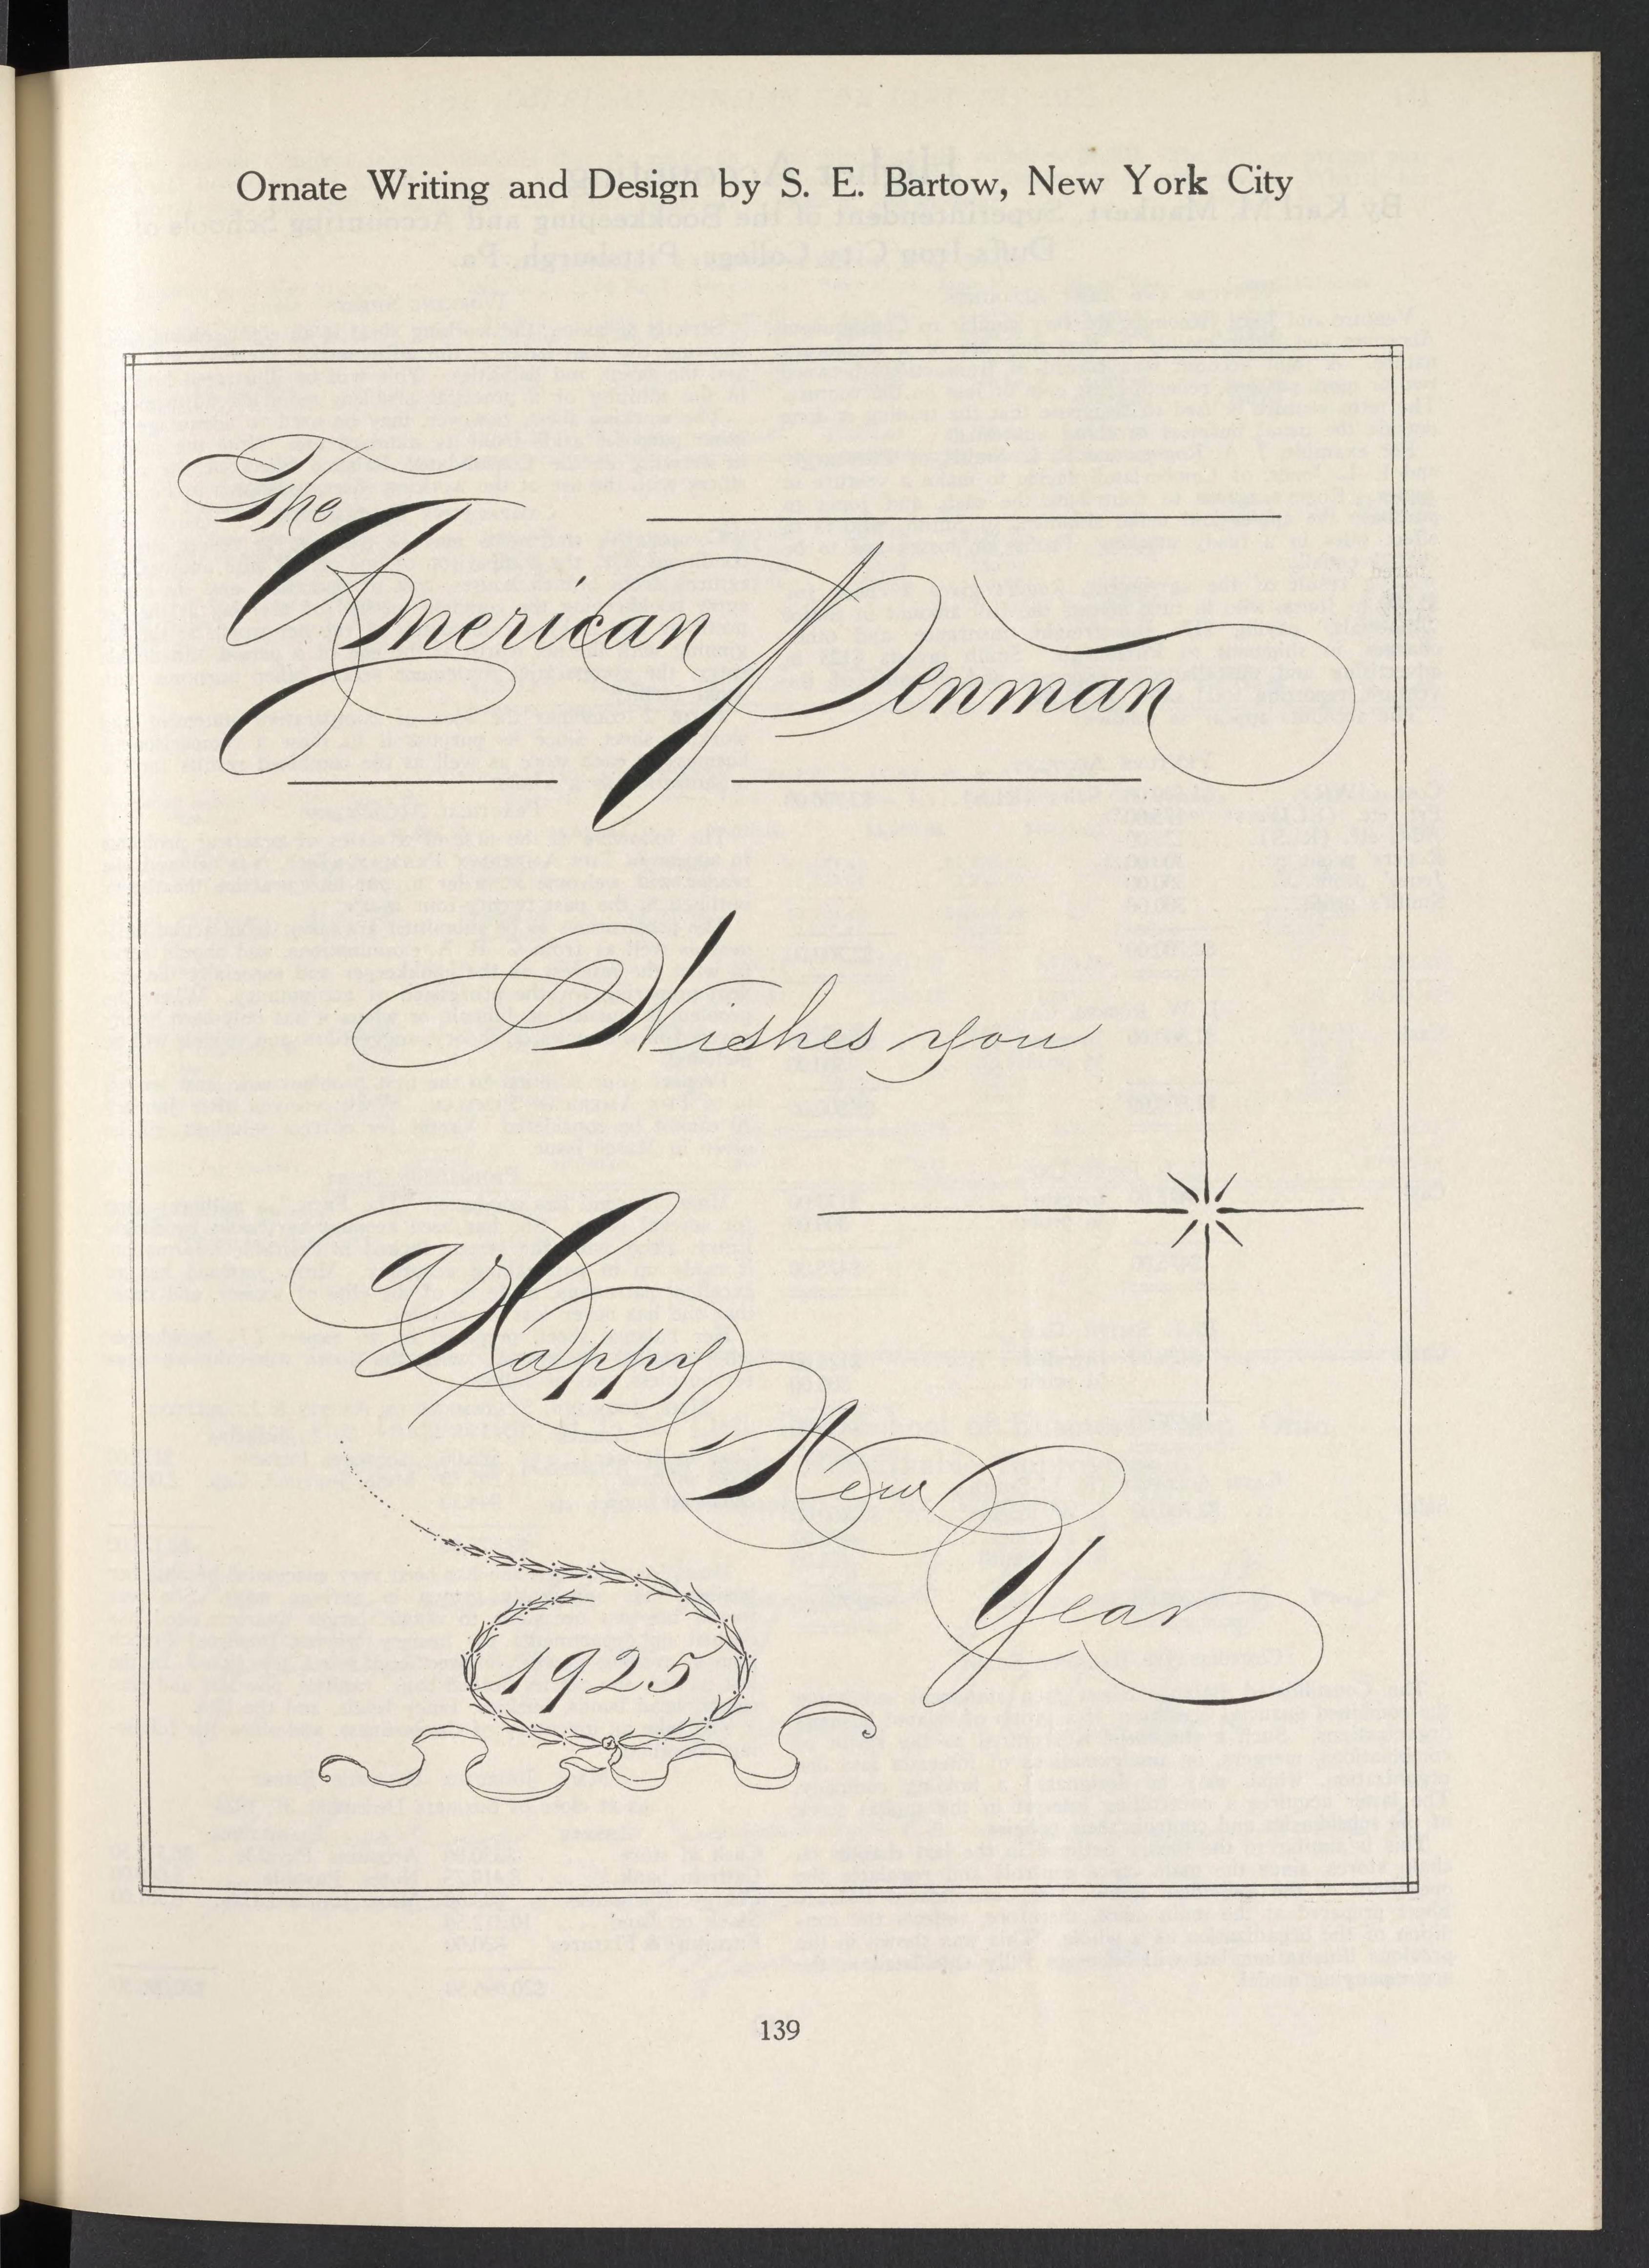 Ornate Writing and Design by S. E. Bartow, New York City
The
American
Penman
Wishes you
a
Happy
New
Year
1925
139